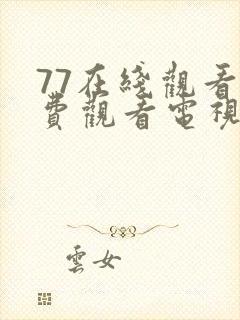 77在綫觀看
費觀看電視
雲女